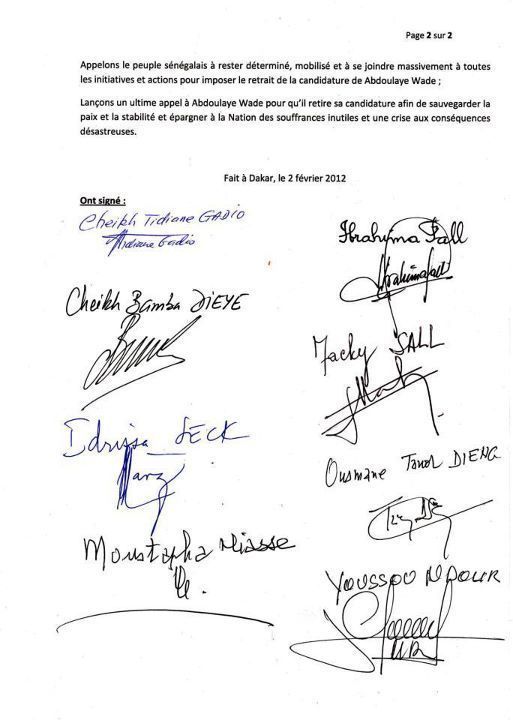 Page 2 sur 2
Appelons le peuple sénégalais à rester déterminé, mobilisé et à se joindre massivement à toutes
les initiatives et actions pour imposer le retrait de la candidature de Abdoulaye Wade ;
Lançons un ultime appel à Abdoulaye Wade pour qu'il retire sa candidature afin de sauvegarder la
paix et la stabilité et épargner à la Nation des souffrances inutiles et une crise aux conséquences
désastreuses.
Fait à Dakar, le 2 février 2012
Ont signé :
Cheikh Tidiane GADIO
Tidiane Gadio
Cheikh Bamba DIEYE
Idrissa SECK
Moustapha Niasse
Ibrahima Fall
Ibrahima Fall
Macky SALL
Ousmane Tanor DIENG
YOUSSOU NDOUR